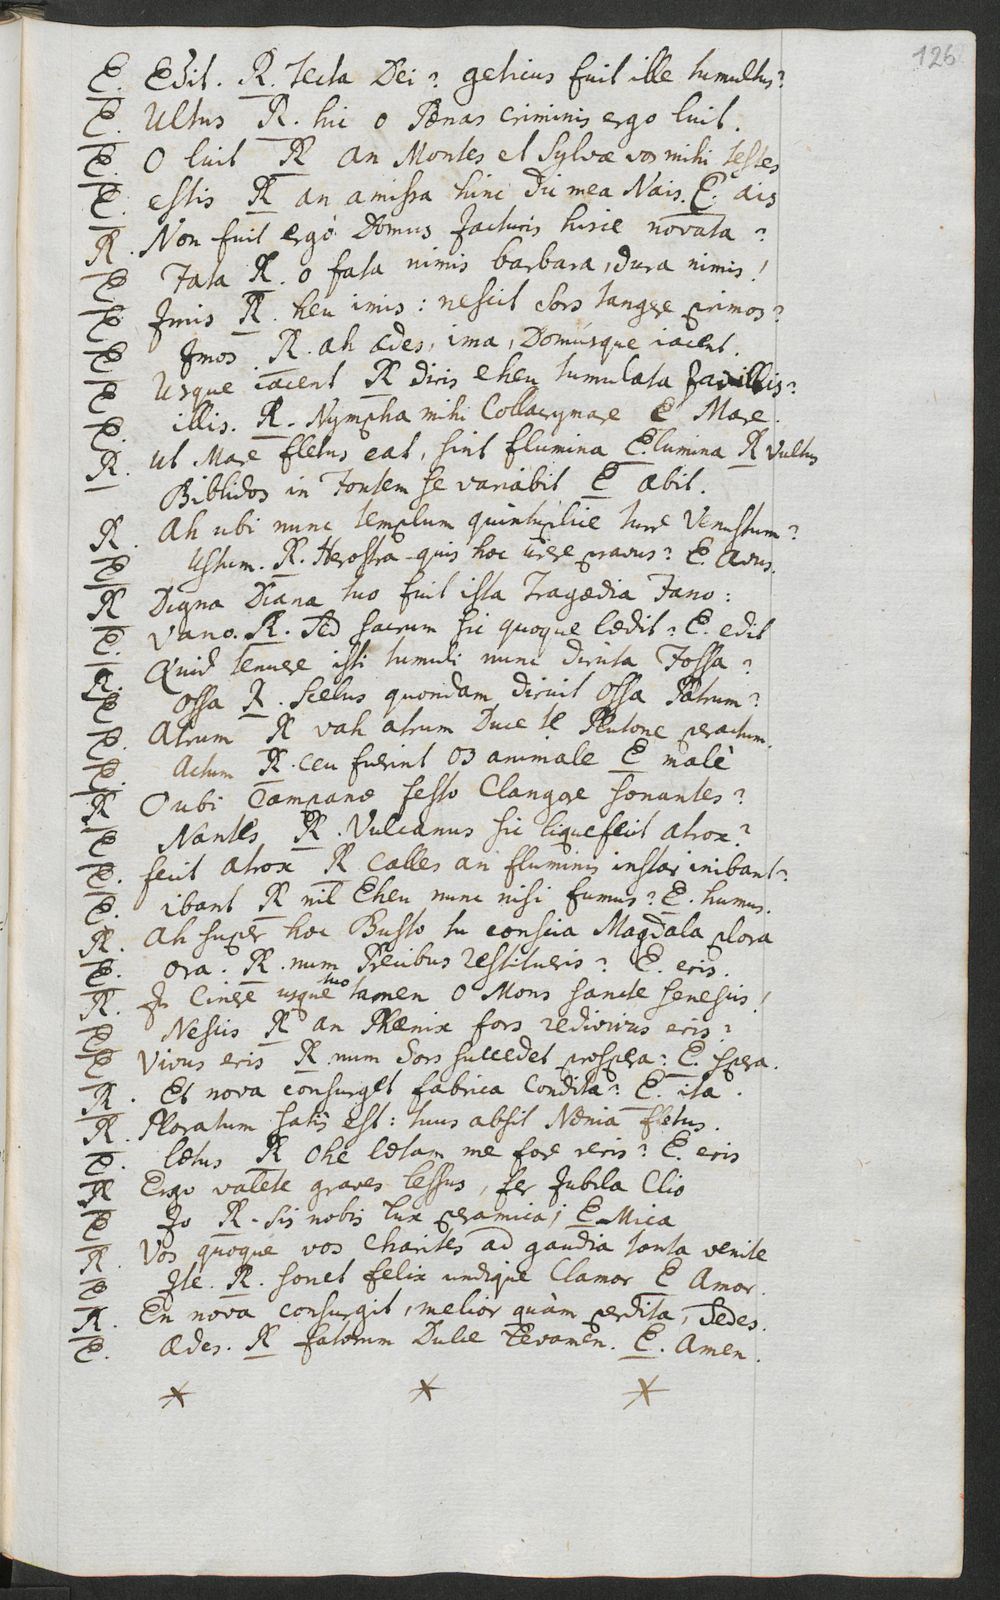 126
E. Edit. R. tecta Dei? geticus fuit ille tumultus?
E. Ultus R. hic o Pænas criminis ergo luit.
E. O luit R an Montes et Sylvæ vos mihi testes
E. estis R an amissa hinc dic mea Nais. E. ais
R. Non fuit ergò Domus facturis hisce novata?
E Fata R. o fata nimis barbara, dura nimis!
E Imis R. heu imis: nescit Sors tangere primos?
E Imos R. ah ædes, ima, Domúsque iacent.
E Usque iacent R diris eheu tumulata favillis?
E. illis. R. Nympha mihi Collacrymare E Mare.
R. Ut Mare fletus eat, sint flumina E. lumina R Vultus
Biblidos in Fontem se variabit E abit.
R. Ah ubi nunc templum quintuplice turre Venustum?
E Ustum. R. Herostra-quis hoc urere pravus? E. Avus.
R Digna Diana tuo fuit ista Tragædia Fano:
E. Vano. R. Sed sacrum sic quoque lædit? E. edit
R. Quid tenuere isti tumuli nunc diruta Fossa?
E Ossa R. scelus quondam diruit Ossa Patrum?
E. Atrum R vah atrum Duce te Plutone peractum.
E. Actum R. ceu fuerint os animale E malè
R O ubi Campanæ festo Clangore sonantes?
E Nantes R. Vulcanus sic liquefecit atrox?
E. fecit atrox R Calles an fluminis instar inibant?
E. ibant R nil Eheu nunc nisi fumus? E. humus.
R. Ah super hoc Busto tu conscia Magdala plora
E. Ora. R. num Precibus restitueris? E. eris.
R. In Cinere usque tuo tamen o Mons sancte senescis!
E Nescis R an Phœnix fors redivivus eris?
E Vivus eris R num Sors succedet prospera? E. spera.
R. Et nova consurget fabrica Condita? E. ita.
R. Ploratum satis est: tuus absit Nænia fletus.
E. lætus R Ohe lætam me fore reris? E. eris
R Ergo valete graves lessus, fer Jubila Clio
E Io R. sis nobis lux peramica; E Mica
R. Vos quoque vos Charites ad gaudia tanta venite
E Ite. R. sonet felix undique Clamor E Amor.
R. En nova consurgit, melior quàm perdita, Sedes.
E. Ædes. R fatorum Dulce Levamen. E. Amen.
* * *